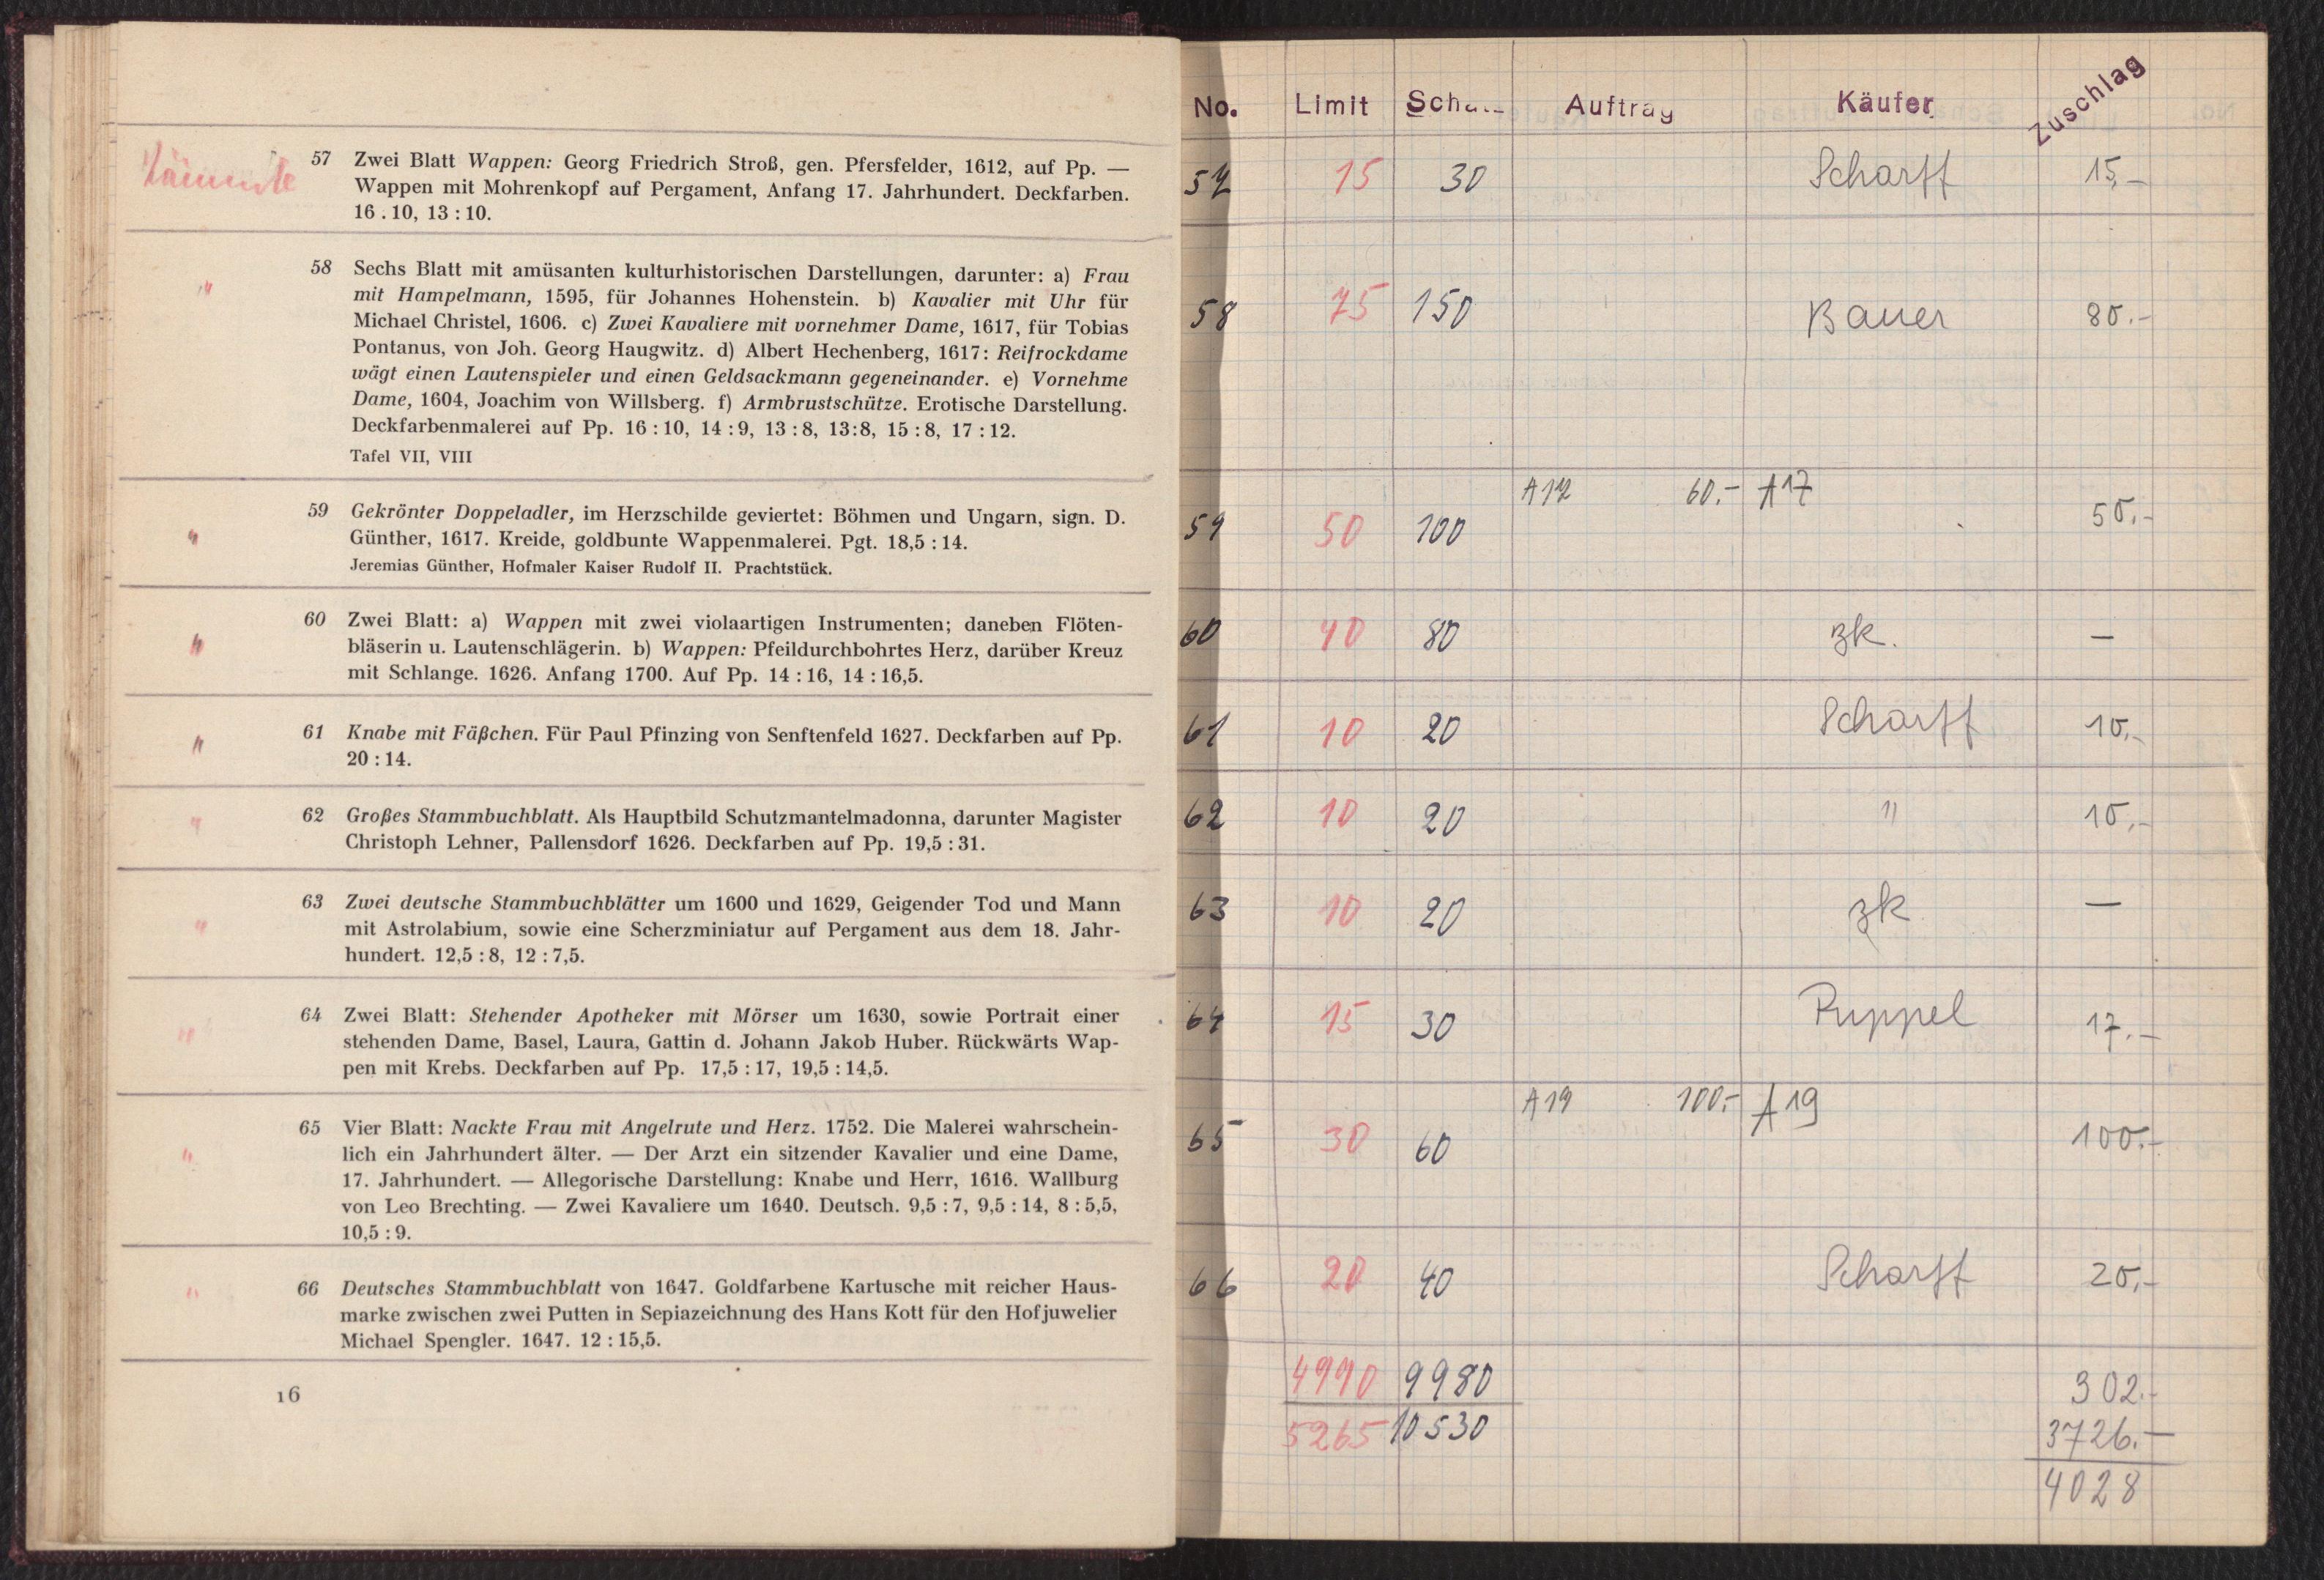 57 Zwei Blatt Wappen: Georg Friedrich Stroß, gen. Pfersfelder, 1612, auf Pp. —
Wappen mit Mohrenkopf auf Pergament, Anfang 17. Jahrhundert. Deckfarben.
16 . 10, 13 : 10.
" 58 Sechs Blatt mit amüsanten kulturhistorischen Darstellungen, darunter: a) Frau
mit Hampelmann, 1595, für Johannes Hohenstein. b) Kavalier mit Uhr für
Michael Christel, 1606. c) Zwei Kavaliere mit vornehmer Dame, 1617, für Tobias
Pontanus, von Joh. Georg Haugwitz. d) Albert Hechenberg, 1617: Reifrockdame
wägt einen Lautenspieler und einen Geldsackmann gegeneinander. e) Vornehme
Dame, 1604, Joachim von Willsberg. f) Armbrustschütze. Erotische Darstellung.
Deckfarbenmalerei auf Pp. 16 : 10, 14 : 9, 13 : 8, 13:8, 15 : 8, 17 : 12.
Tafel VII, VIII
" 59 Gekrönter Doppeladler, im Herzschilde geviertet: Böhmen und Ungarn, sign. D.
Günther, 1617. Kreide, goldbunte Wappenmalerei. Pgt. 18,5 : 14.
Jeremias Günther, Hofmaler Kaiser Rudolf II. Prachtstück.
" 60 Zwei Blatt: a) Wappen mit zwei violaartigen Instrumenten; daneben Flöten-
bläserin u. Lautenschlägerin. b) Wappen: Pfeildurchbohrtes Herz, darüber Kreuz
mit Schlange. 1626. Anfang 1700. Auf Pp. 14 : 16, 14 : 16,5.
" 61 Knabe mit Fäßchen. Für Paul Pfinzing von Senftenfeld 1627. Deckfarben auf Pp.
20 : 14.
" 62 Großes Stammbuchblatt. Als Hauptbild Schutzmantelmadonna, darunter Magister
Christoph Lehner, Pallensdorf 1626. Deckfarben auf Pp. 19,5 : 31.
" 63 Zwei deutsche Stammbuchblätter um 1600 und 1629, Geigender Tod und Mann
mit Astrolabium, sowie eine Scherzminiatur auf Pergament aus dem 18. Jahr-
hundert. 12,5 : 8, 12 : 7,5.
" 64 Zwei Blatt: Stehender Apotheker mit Mörser um 1630, sowie Portrait einer
stehenden Dame, Basel, Laura, Gattin d. Johann Jakob Huber. Rückwärts Wap-
pen mit Krebs. Deckfarben auf Pp. 17,5 : 17, 19,5 : 14,5.
" 65 Vier Blatt: Nackte Frau mit Angelrute und Herz. 1752. Die Malerei wahrschein-
lich ein Jahrhundert älter. — Der Arzt ein sitzender Kavalier und eine Dame,
17. Jahrhundert. — Allegorische Darstellung: Knabe und Herr, 1616. Wallburg
von Leo Brechting. — Zwei Kavaliere um 1640. Deutsch. 9,5 : 7, 9,5 : 14, 8 : 5,5,
10,5 : 9.
" 66 Deutsches Stammbuchblatt von 1647. Goldfarbene Kartusche mit reicher Haus-
marke zwischen zwei Putten in Sepiazeichnung des Hans Kott für den Hofjuwelier
Michael Spengler. 1647. 12 : 15,5.
16
No. Limit Auftrag Käufer Zuschlag
57 15 30 Scharff 15,-
58 75 150 Bauer 80.-
A17 60.- A17
59 50 100 50.-
60 40 80 zk. —
61 10 20 Scharff 10.-
62 10 20 " 10.-
63 10 20 zk —
64 15 30 Puppel 17.-
A19 100.- A19
65 30 60 100.-
66 20 40 Scharff 20.-
4990 9980 302.-
5265 10530 3726.-
4028